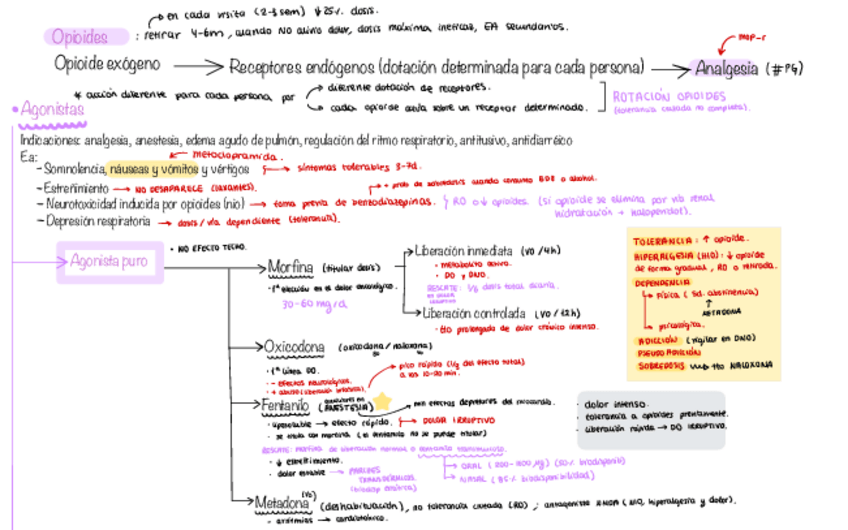 en cada visita (2-3 sem) ↓ 25% dosis.
Opioides : retirar 4-6m, cuando NO alivio dolor, dosis máxima ineficaz, EA secundarios.
mop-r
Opioide exógeno → Receptores endógenos (dotación determinada para cada persona) → Analgesia (#PG)
* acción diferente para cada persona por
diferente dotación de receptores.
cada opioide actúa sobre un receptor determinado.
ROTACIÓN OPIOIDES
(tolerancia cruzada no completa).
• Agonistas
Indicaciones: analgesia, anestesia, edema agudo de pulmón, regulación del ritmo respiratorio, antitusivo, antidiarréico
Ea: metoclopramida.
- Somnolencia, náuseas y vómitos y vértigos → síntomas tolerables 3-7d.
- Estreñimiento → NO DESAPARECE (LAXANTES).
+ prob de sobredosis cuando consumo BDZ o alcohol.
- Neurotoxicidad inducida por opioides (nio) → toma previa de benzodiazepinas. RO o ↓ opioides. (si opioide se elimina por vía renal
hidratación + haloperidol).
- Depresión respiratoria → dosis/vía dependiente (tolerancia).
Agonista puro
• NO EFECTO TECHO.
Morfina (titular dosis)
• 1ª elección en el dolor oncológico.
30-60 mg/d
Liberación inmediata (VO/4h)
• metabolito activo.
• DO y DNO.
RESCATE: 1/6 dosis total diaria.
Liberación controlada (VO/12h)
• tto prolongado de dolor crónico intenso.
TOLERANCIA: ↑ opioide.
HIPERALGESIA (HIO): ↓ opioide
de forma gradual, RO o retirada.
DEPENDENCIA
Física (Sd. abstinencia)
METADONA
psicológica.
ADICCIÓN (vigilar en DNO)
PSEUDO ADICCIÓN
SOBREDOSIS → tto NALOXONA
Oxicodona (oxicodona/naloxona)
• 1ª línea DO.
• - efectos neurológicos.
pico rápido (1/3 del efecto total)
a los 10-20 min.
Fentanilo (ANESTESIA) → min efectos depresores del miocardio.
• liposoluble → efecto rápido. → DOLOR IRRUPTIVO
• se titula con morfina (el fentanilo no se puede titular)
RESCATE: morfina de liberación normal o fentanilo transmucoso.
• ↓ estreñimiento.
• dolor estable → PARCHES
TRANSDÉRMICOS.
ORAL (200-1600 μg) (50% biodisponib)
NASAL (85% biodisponibilidad)
• dolor intenso.
• tolerancia a opioides previamente.
• liberación rápida → DO IRRUPTIVO.
Metadona (VO) (deshabituación), no tolerancia cruzada (RO); antagonista NMDA (NIO, hiperalgesia y dolor).
• arritmias → cardiotóxico.